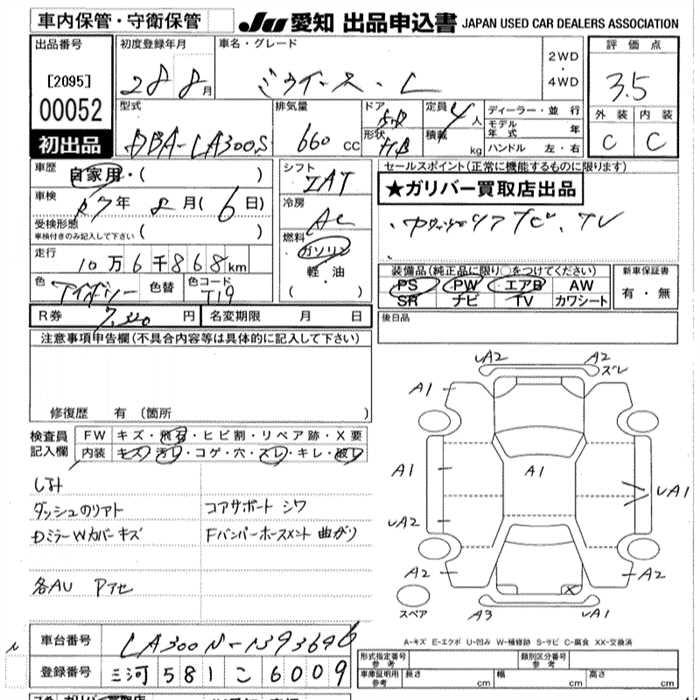 車内保管・守衛保管 JU 愛知 出品申込書 JAPAN USED CAR DEALERS ASSOCIATION
出品番号 初度登録年月 車名・グレード 2WD・4WD 評価点
[2095] 28 8月 ミライース・L 3.5
00052 型式 排気量 ドア 定員 ディーラー・並行 外装 内装
DBA-LA300S 660cc 5D 4人 モデル年式 年 C C
初出品 形状 HB 積載 kg ハンドル 左・右
車歴 自家用・( ) シフト セールスポイント(正常に機能するものに限ります)
車検 R7年 8月(6日) IAT ★ガリバー買取店出品
受検形態 冷房 AC TV
車検付きのみ記入して下さい ( )
走行 10万6千868km 燃料 ガソリン
軽油
( )
装備品(純正品に限り○をつけてください) 新車保証書
色 色替 色コード T19 PS PW エアB AW 有・無
SR ナビ TV カワシート
R券 円 名変期限 月 日 後日品
注意事項申告欄(不具合内容等は具体的に記入して下さい)
修復歴 有 (箇所 )
検査員記入欄 FW キズ・飛石・ヒビ割・リペア跡・X要
内装 キズ・汚レ・コゲ・穴・スレ・キレ・破レ
ダッシュのリアト コアサポート シワ
DミラーWカバーキズ Fバンパーホースメント 曲がり
各AU Pアセ
UA2 A2
ズレ
A1
A1 A1 UA1
UA2
A2 A2
スペア A3 UA1
A-キズ E-エクボ U-凹み W-補修跡 S-サビ C-腐食 XX-交換済
車台番号 形式指定番号 参考 類別区分番号 参考
登録番号 三河 581 こ 6009 車庫証明用 参考 長さ cm 幅 cm 高さ cm
ガリバー買取店